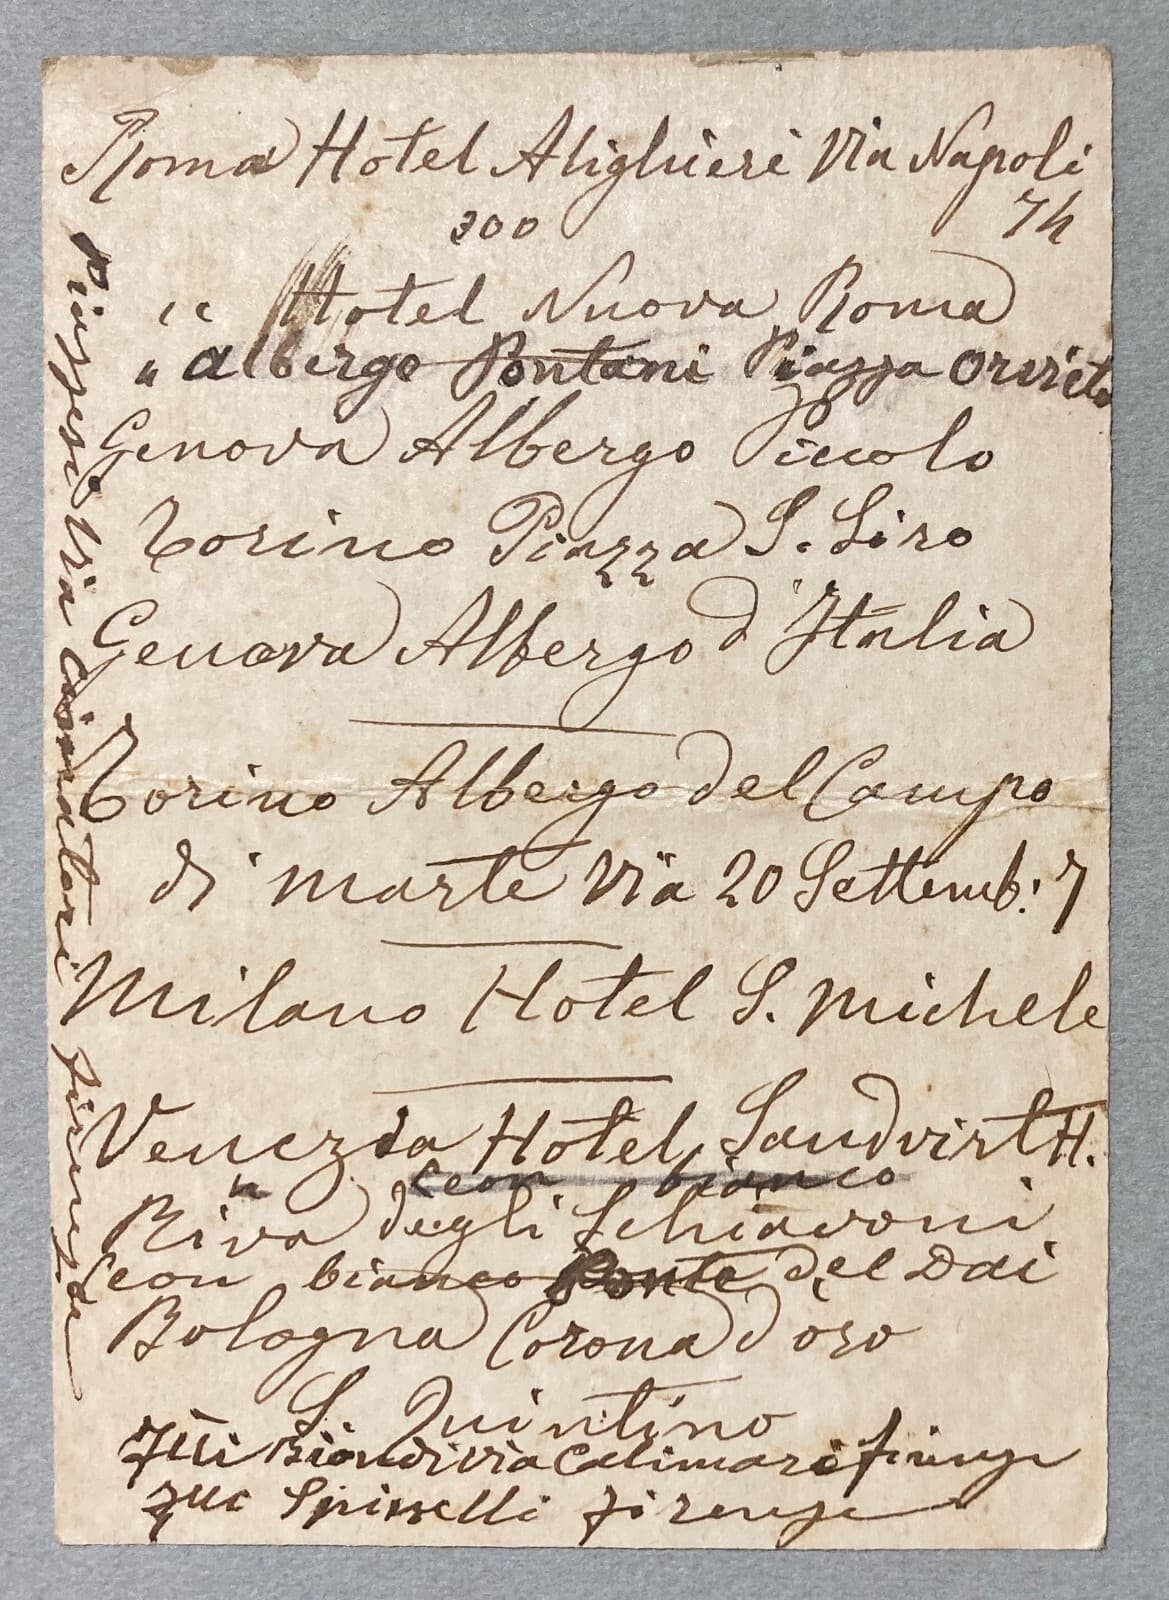 Roma Hotel Alighieri Via Napoli
300 7h
" Hotel Nuova Roma
" albergo Pontani Piazza Orvieto
Genova Albergo Piccolo
Torino Piazza S. Siro
Genova Albergo d'Italia
Torino Albergo del Campo
di marte Via 20 Settemb: 7
Milano Hotel S. Michele
Venezia Hotel Sandvirt H.
" Leon bianco
Riva degli Schiavoni
Leon bianco Ponte del Dai
Bologna Corona d'oro
S. Quintino
Biondi via Calimari firenze
Spinelli firenze
Via Cimatori firenze